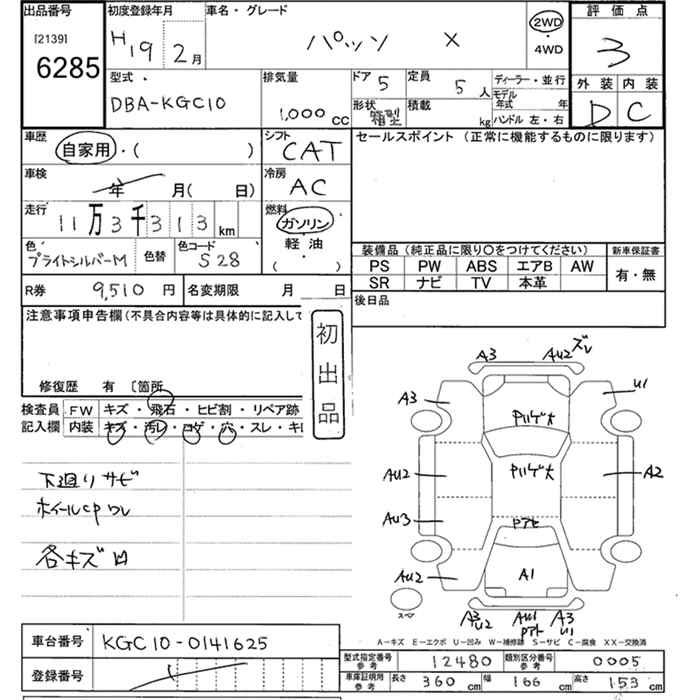 出品番号 初度登録年月 車名・グレード 評価点
[2139] H19 2月 パッソ X 2WD 3
6285 4WD
型式 排気量 ドア 5 定員 5人 ディーラー・並行 外装 内装
DBA-KGC10 1,000 cc 形状 箱型 積載 kg モデル年式 年 D C
ハンドル 左・右
車歴 シフト セールスポイント (正常に機能するものに限ります)
自家用・( ) CAT
車検 年 月( 日) 冷房 AC
走行 燃料
11万3千313 km ガソリン
軽油
色 色替 色コード ・
ブライトシルバーM S28 ( )
装備品 (純正品に限り〇をつけてください) 新車保証書
PS PW ABS エアB AW 有・無
SR ナビ TV 本革
R券 9,510 円 名変期限 月 日 後日品
注意事項申告欄(不具合内容等は具体的に記入して
初出品
修復歴 有 〔箇所
検査員 FW キズ・飛石・ヒビ割・リペア跡
記入欄 内装 キズ・汚レ・コゲ・穴・スレ・キレ
下廻りサビ
各キズ凹
A3 AU2 ズレ
A3 U1
AU2 A2
AU3
AU2 A1
A3 U2 A3 U1
スペア
A-キズ E-エクボ U-凹み W-補修跡 S-サビ C-腐食 XX-交換済
車台番号 KGC10-0141625
型式指定番号 参考 12480 類別区分番号 参考 0005
登録番号
車庫証明用 参考 長さ 360 cm 幅 166 cm 高さ 153 cm